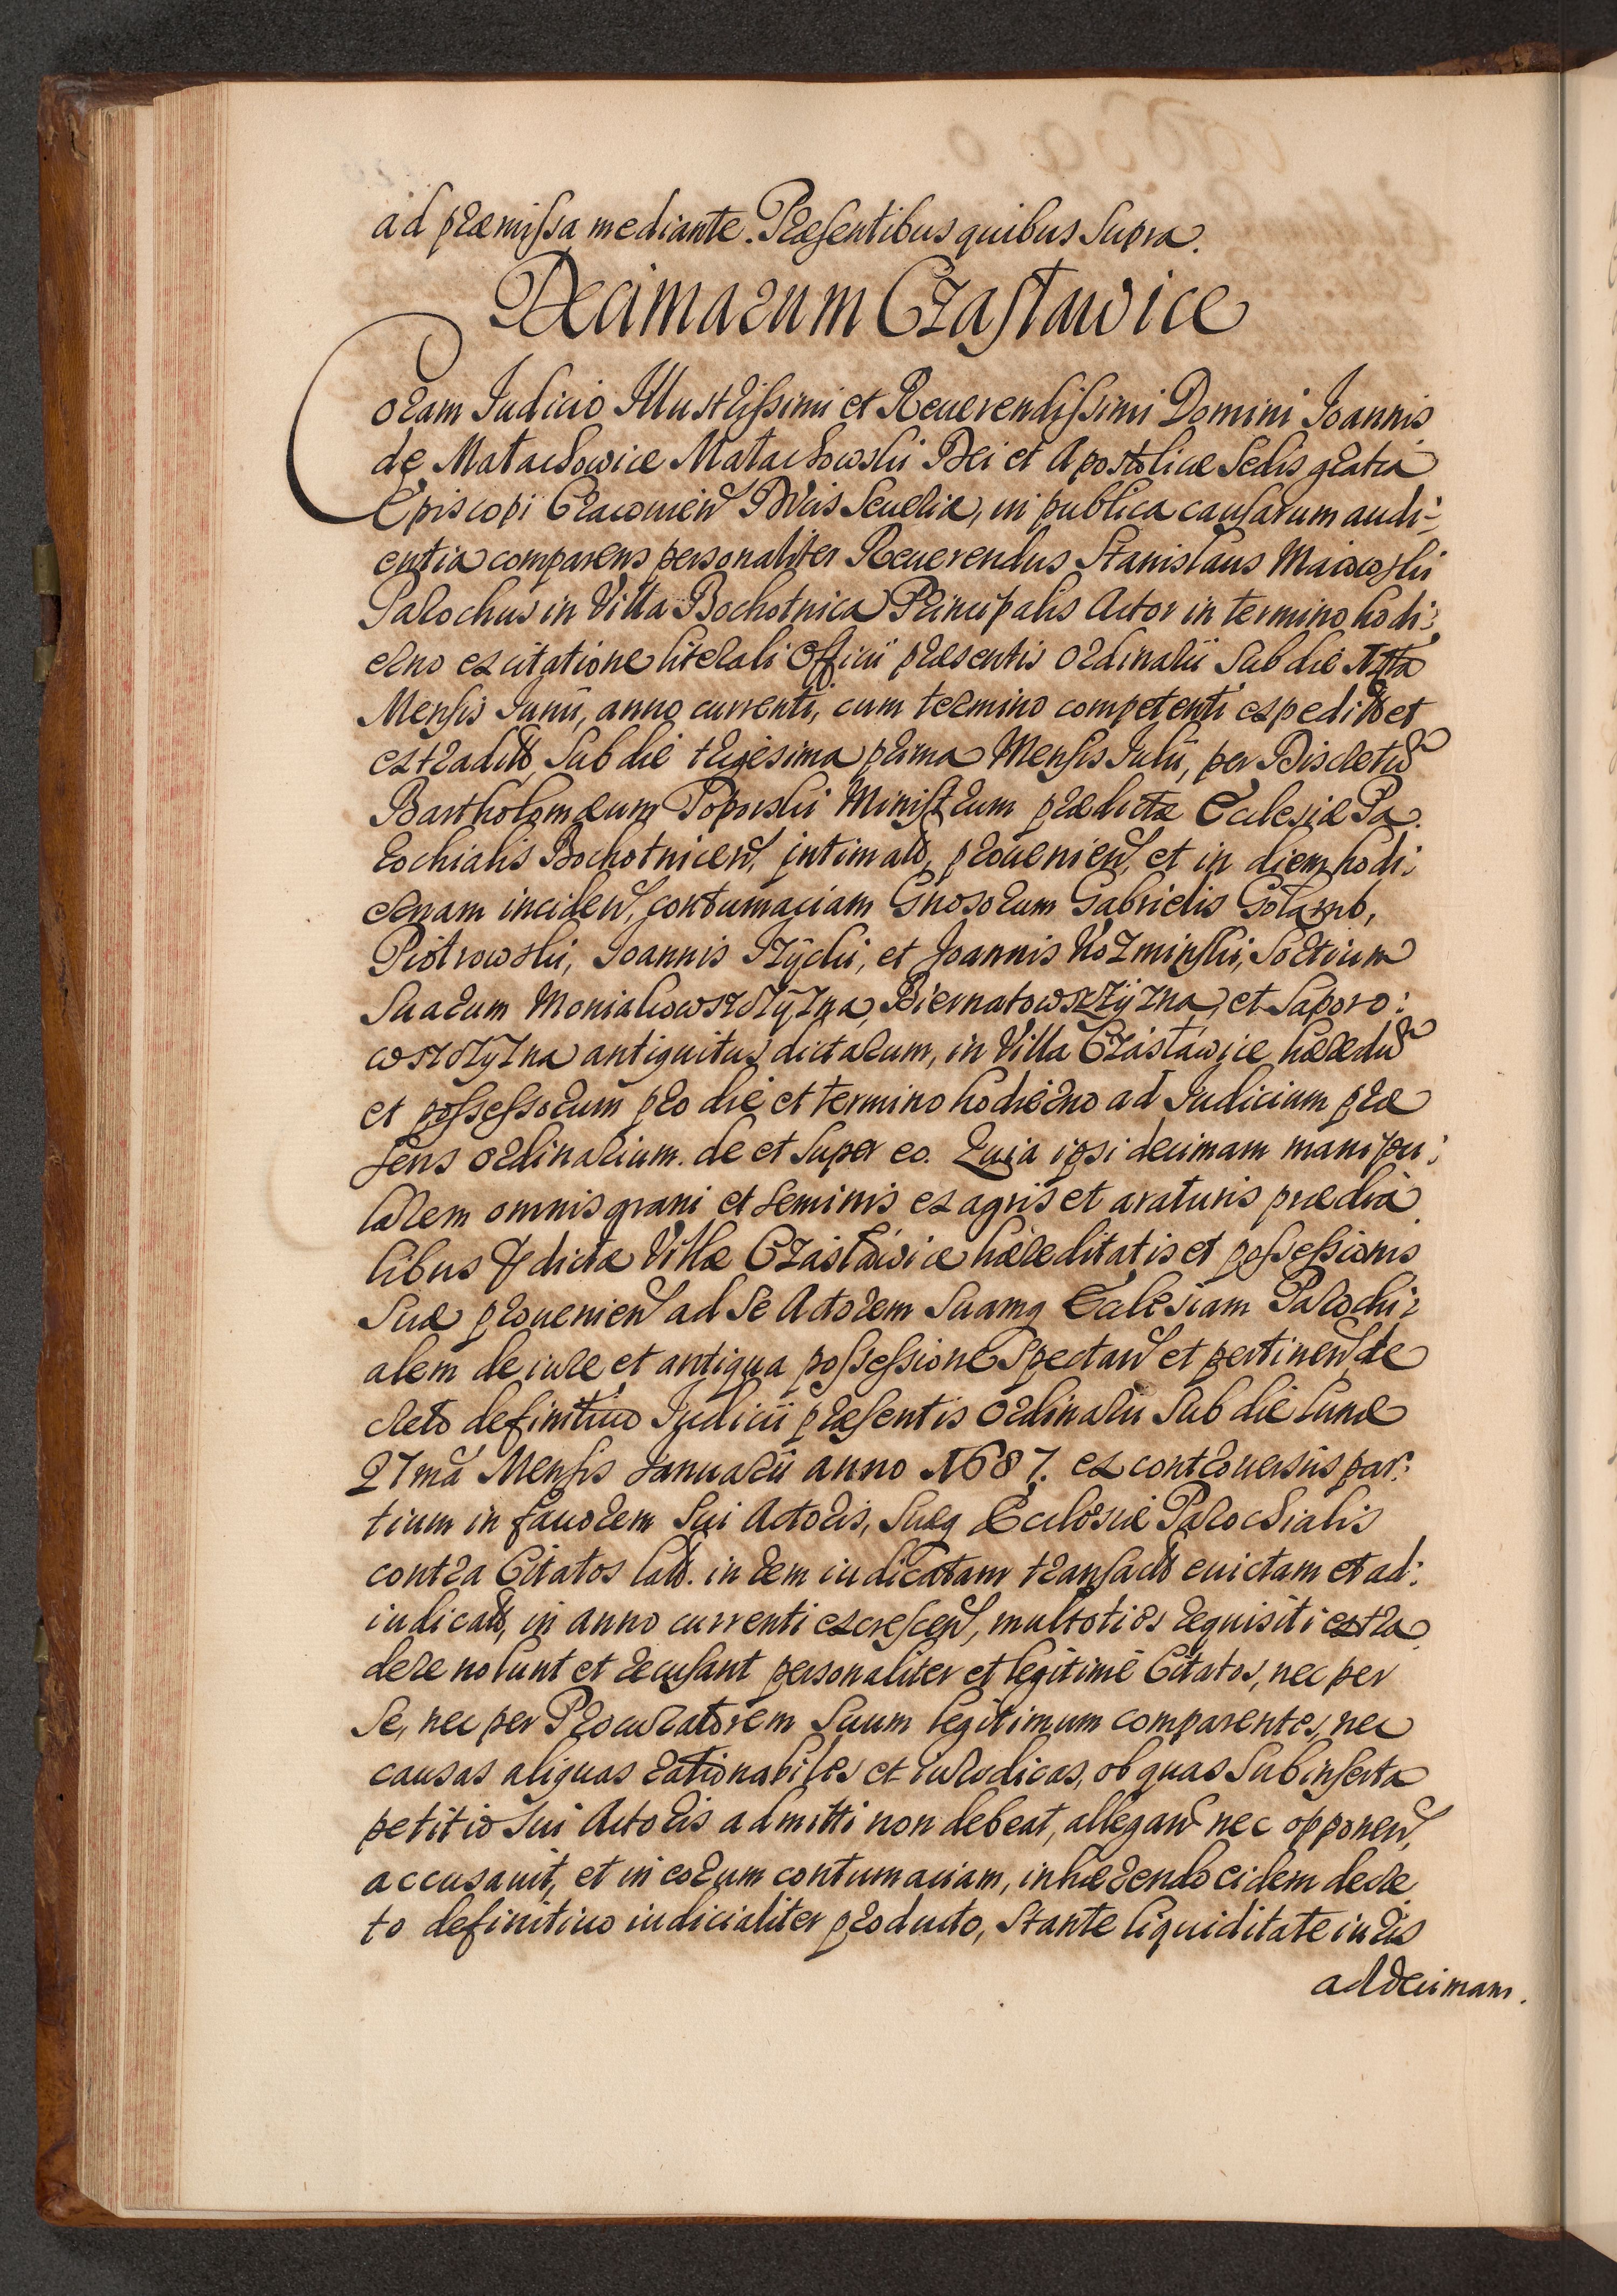 ad præmissa mediante. Præsentibus quibus Supra.
Decimarum Czasławice
Coram Iudicio Illustrissimi et Reuerendissimi Domini Ioannis
de Małachowice Małachowski Dei et Apostolicæ Sedis gratia
Episcopi Cracouien Ducis Seueriæ, in publica causarum audi-
entia comparens personaliter Reuerendus Stanislaus Maiowski
Parochus in Villa Bochotnica Principalis Actor in termino hodi:
erno ex citatione literali Officii præsentis Ordinarii Sub die
Mensis Junii, anno currenti, cum termino competenti expedit et
extradit, Sub die trigesima prima Mensis Julii, per Discretũ
Bartholomæum Toporski Ministrum prædictæ Ecclesiæ Pa.
rochialis Bochotnicen, intimat, prouenien, et in diem hodi:
ernam inciden, contumaciam Gnosorum Gabrielis Gołąmb,
Piotrowski, Ioannis Szÿcki, et Joannis Kozminski, Sortium
Suarum Moniakowszczÿzna, Biernatowszczÿzna, et Saporo:
wszczÿzna antiquitus dictarum, in Villa Czasławice hæredũ
et possessorum pro die et termino hodierno ad Iudicium præ
sens ordinarium. de et Super eo. Quia ipsi decimam manipu:
larem omnis grani et seminis ex agris et araturis prædia.
libus dictæ Villæ Czasławice hæreditatis et possessionis
Suæ prouenien ad Se Actorem Suamq Ecclesiam Parochi:
alem de iure et antiqua possessione Spectan et pertinen de
creto definitiuo Judicii præsentis Ordinarii Sub die Lunæ
27mã Mensis Januarii anno 1687. ex controuersiis par:
tium in fauorem Sui Actoris, Suæq Ecclesiæ Parochialis
contra Citatos lat. in rem iudicatam transact euictam et ad:
iudicat, in anno currenti excrescen, multoties requisiti extra.
dere nolunt et recusant personaliter et legitime Citatos, nec per
Se, nec per Procuratorem Suum legitimum comparentes, nec
causas aliquas rationabiles et iuridicas, ob quas Subinserta
petitio Sui Actoris admitti non debeat, allegan nec opponen,
accusauit, et in eorum contumaciam, inhærendo eidem decre
to definitiuo iudicialiter producto, Stante liquiditate iuris
ad decimam.